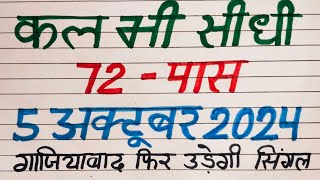 कल मी सीधी
72 - पास
5 अक्टूबर 2024
गाजियावाद फिर उड़ेगी सिंगल